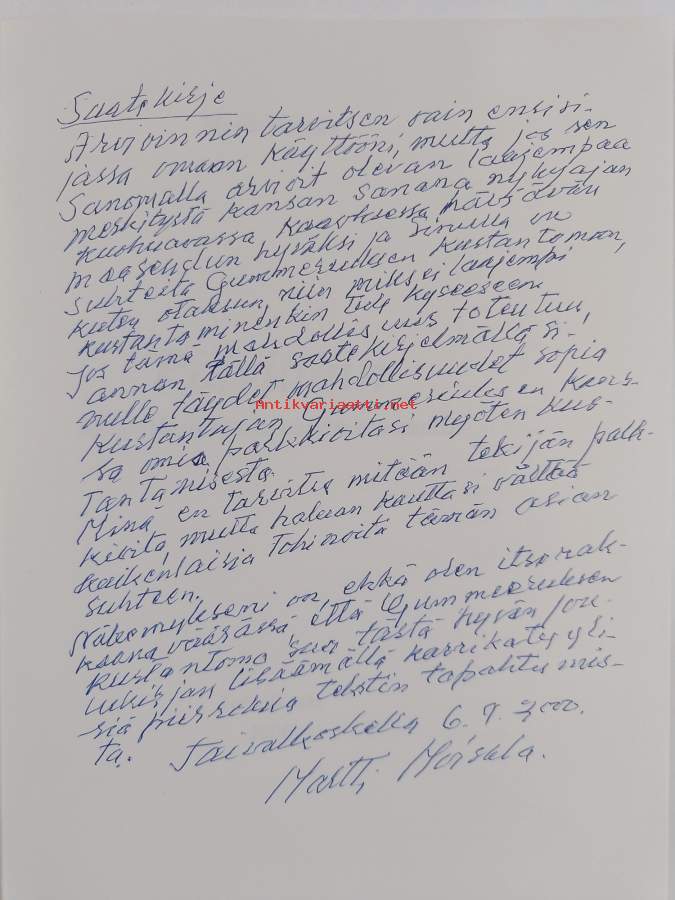 Saatekirje
Arvioinnin tarvitsen vain ensisi-
jassa omaan käyttööni, mutta jos sen
sanomalla arvioit olevan laajempaa
merkitystä kansan sanana nykyajan
kuohuavassa kaaoksessa häviävän
maaseudun hyväksi ja Sinulla on
suhteita Gummeruksen kustantomoon,
kuten otaksun, niin miksei laajempi
kustantaminenkin tule kyseeseen.
Jos tämä mahdollisuus toteutuu,
annan tällä saatekirjelmällä si-
nulle täydet mahdollisuudet sopia
kustantajan Gummeruksen kans-
sa omia palkkioitasi myöten kus-
tantamisesta.
Minä en tarvitse mitään tekijän palk-
kioita, mutta haluan kauttasi välttää
kaikenlaisia tohinoita tämän asian
suhteen.
Näkemykseni on, ehkä olen itserak-
kaana väärässä, että Gummeruksen
kustantomo saa tästä hyvän jou-
lukirjan lisäämällä karrikatyyli-
siä piirroksia tekstin tapahtumis-
ta. Taivalkoskella 6.9.2000.
Martti
Antikvariaatti.net